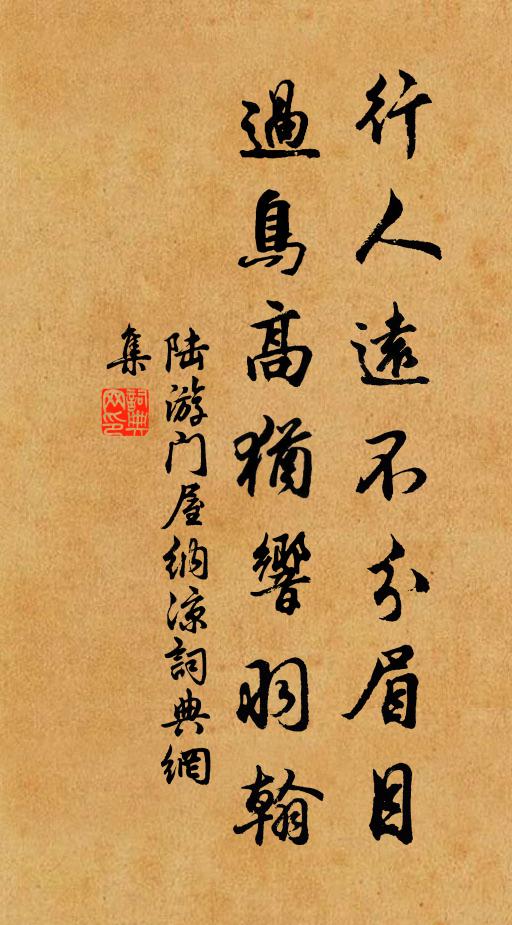 行人遠不分眉目
過鳥高猶響羽翰
陸游门屋納涼詞典網
集
詞典网印